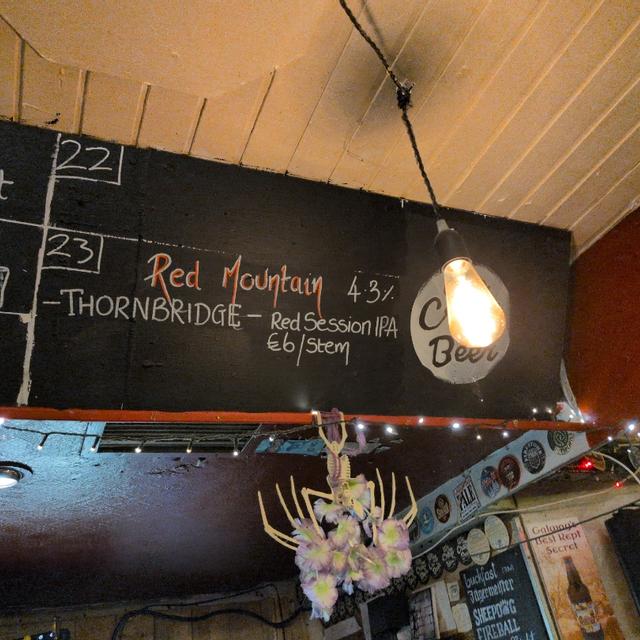 22
23
Red Mountain 4.3%
-THORNBRIDGE- Red Session IPA
£6/Stem
Beer
ALE
Galway's
Best Kept
Secret
buckfast
Jägermeister
FIREBALL